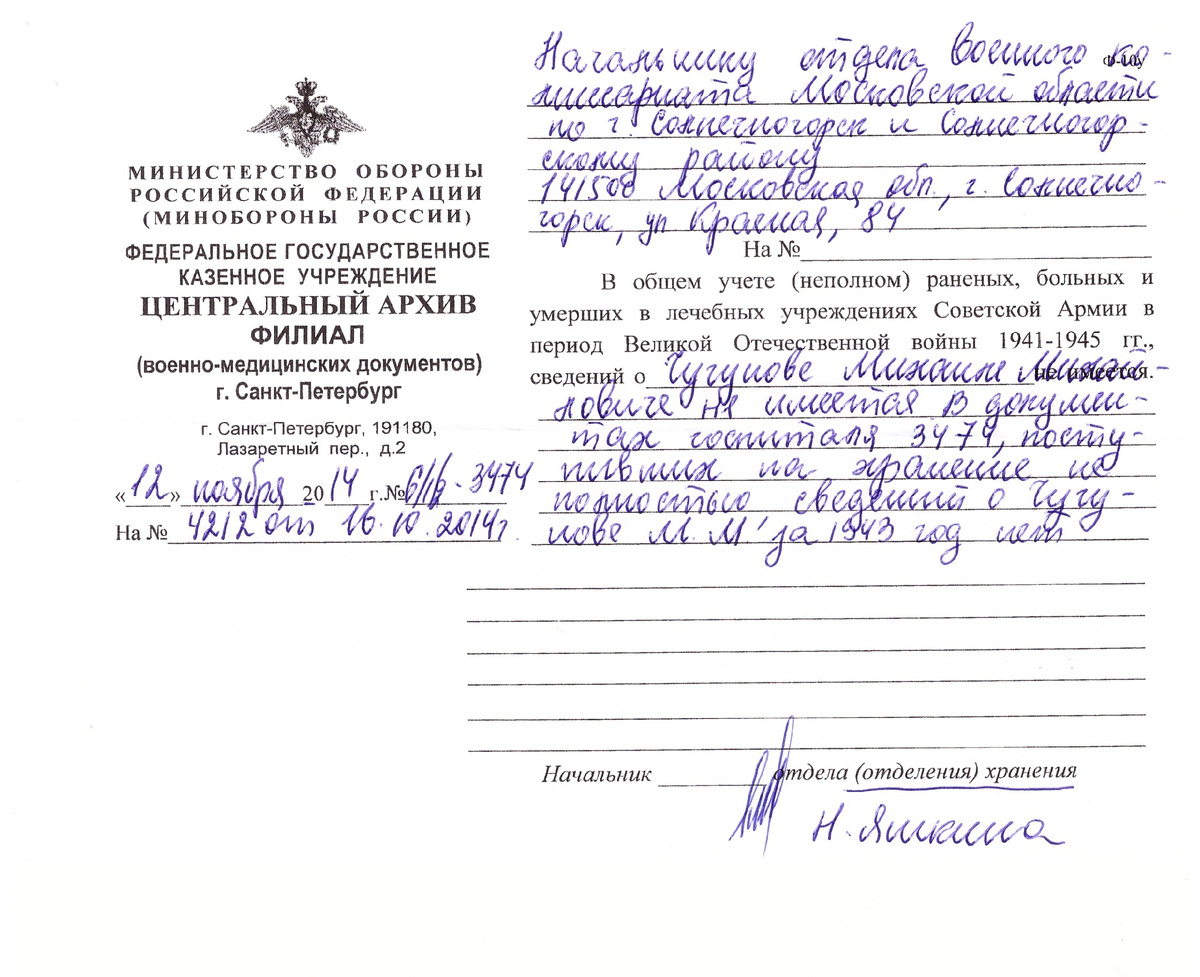 МИНИСТЕРСТВО ОБОРОНЫ
РОССИЙСКОЙ ФЕДЕРАЦИИ
(МИНОБОРОНЫ РОССИИ)
ФЕДЕРАЛЬНОЕ ГОСУДАРСТВЕННОЕ
КАЗЕННОЕ УЧРЕЖДЕНИЕ
ЦЕНТРАЛЬНЫЙ АРХИВ
ФИЛИАЛ
(военно-медицинских документов)
г. Санкт-Петербург
г. Санкт-Петербург, 191180,
Лазаретный пер., д.2
«12» ноября 2014 г.№ 6/ - 3474
На № 4212 от 16.10.2014г.
Начальнику отдела Военного ко-
миссариата Московской области
по г. Солнечногорск и Солнечногор-
скому району
141500 Московская обл., г. Солнечно-
горск, ул Красная, 84
На №
В общем учете (неполном) раненых, больных и
умерших в лечебных учреждениях Советской Армии в
период Великой Отечественной войны 1941-1945 гг.,
сведений о Чугунове Михаиле Михай- не имеется.
ловиче не имеется В докумен-
тах госпиталя 3474, посту-
пивших на хранение не
полностью сведений о Чугу-
нове М.М. за 1943 год нет
Начальник отдела (отделения) хранения
Н. Яшкина